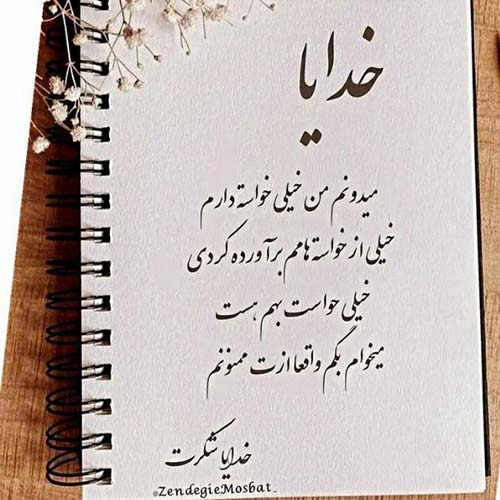 خدایا
میدونم من خیلی خواسته دارم
خیلی از خواسته هامم برآورده کردی
خیلی حواست بهم هست
میخوام بگم واقعا ازت ممنونم
خدایا شکرت
©ZendegieMosbat_